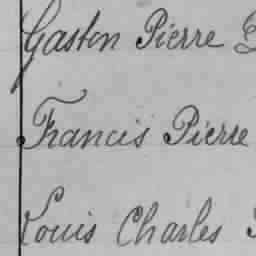 Gaston Pierre
Francis Pierre
Louis Charles